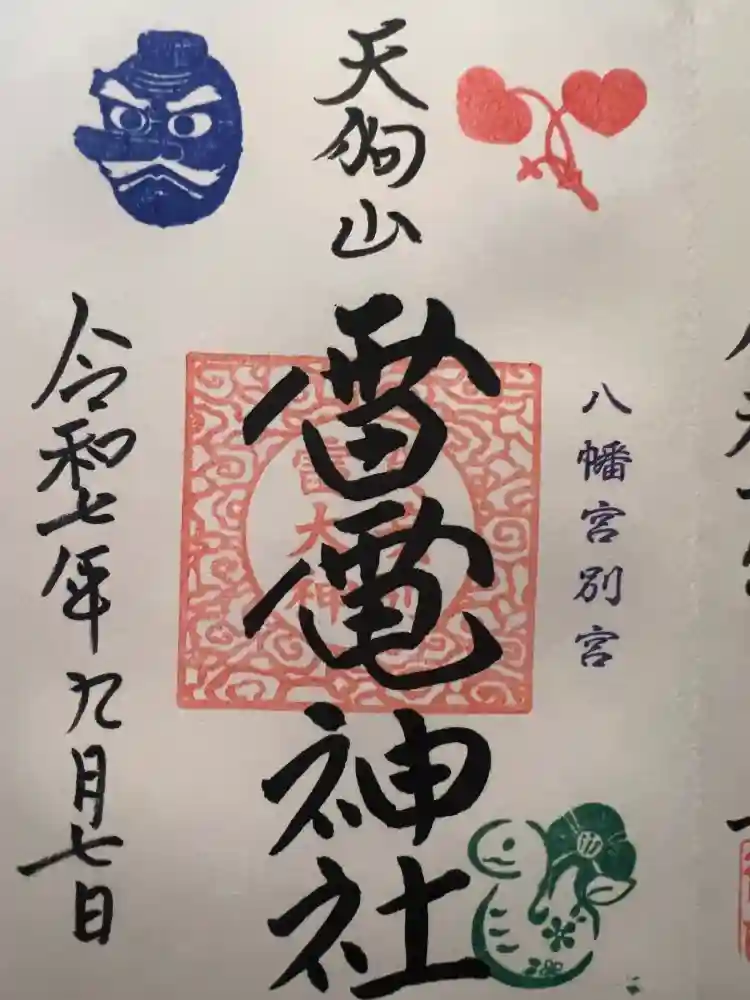 天狗山
雷電神社
八幡宮別宮
令和七年九月七日